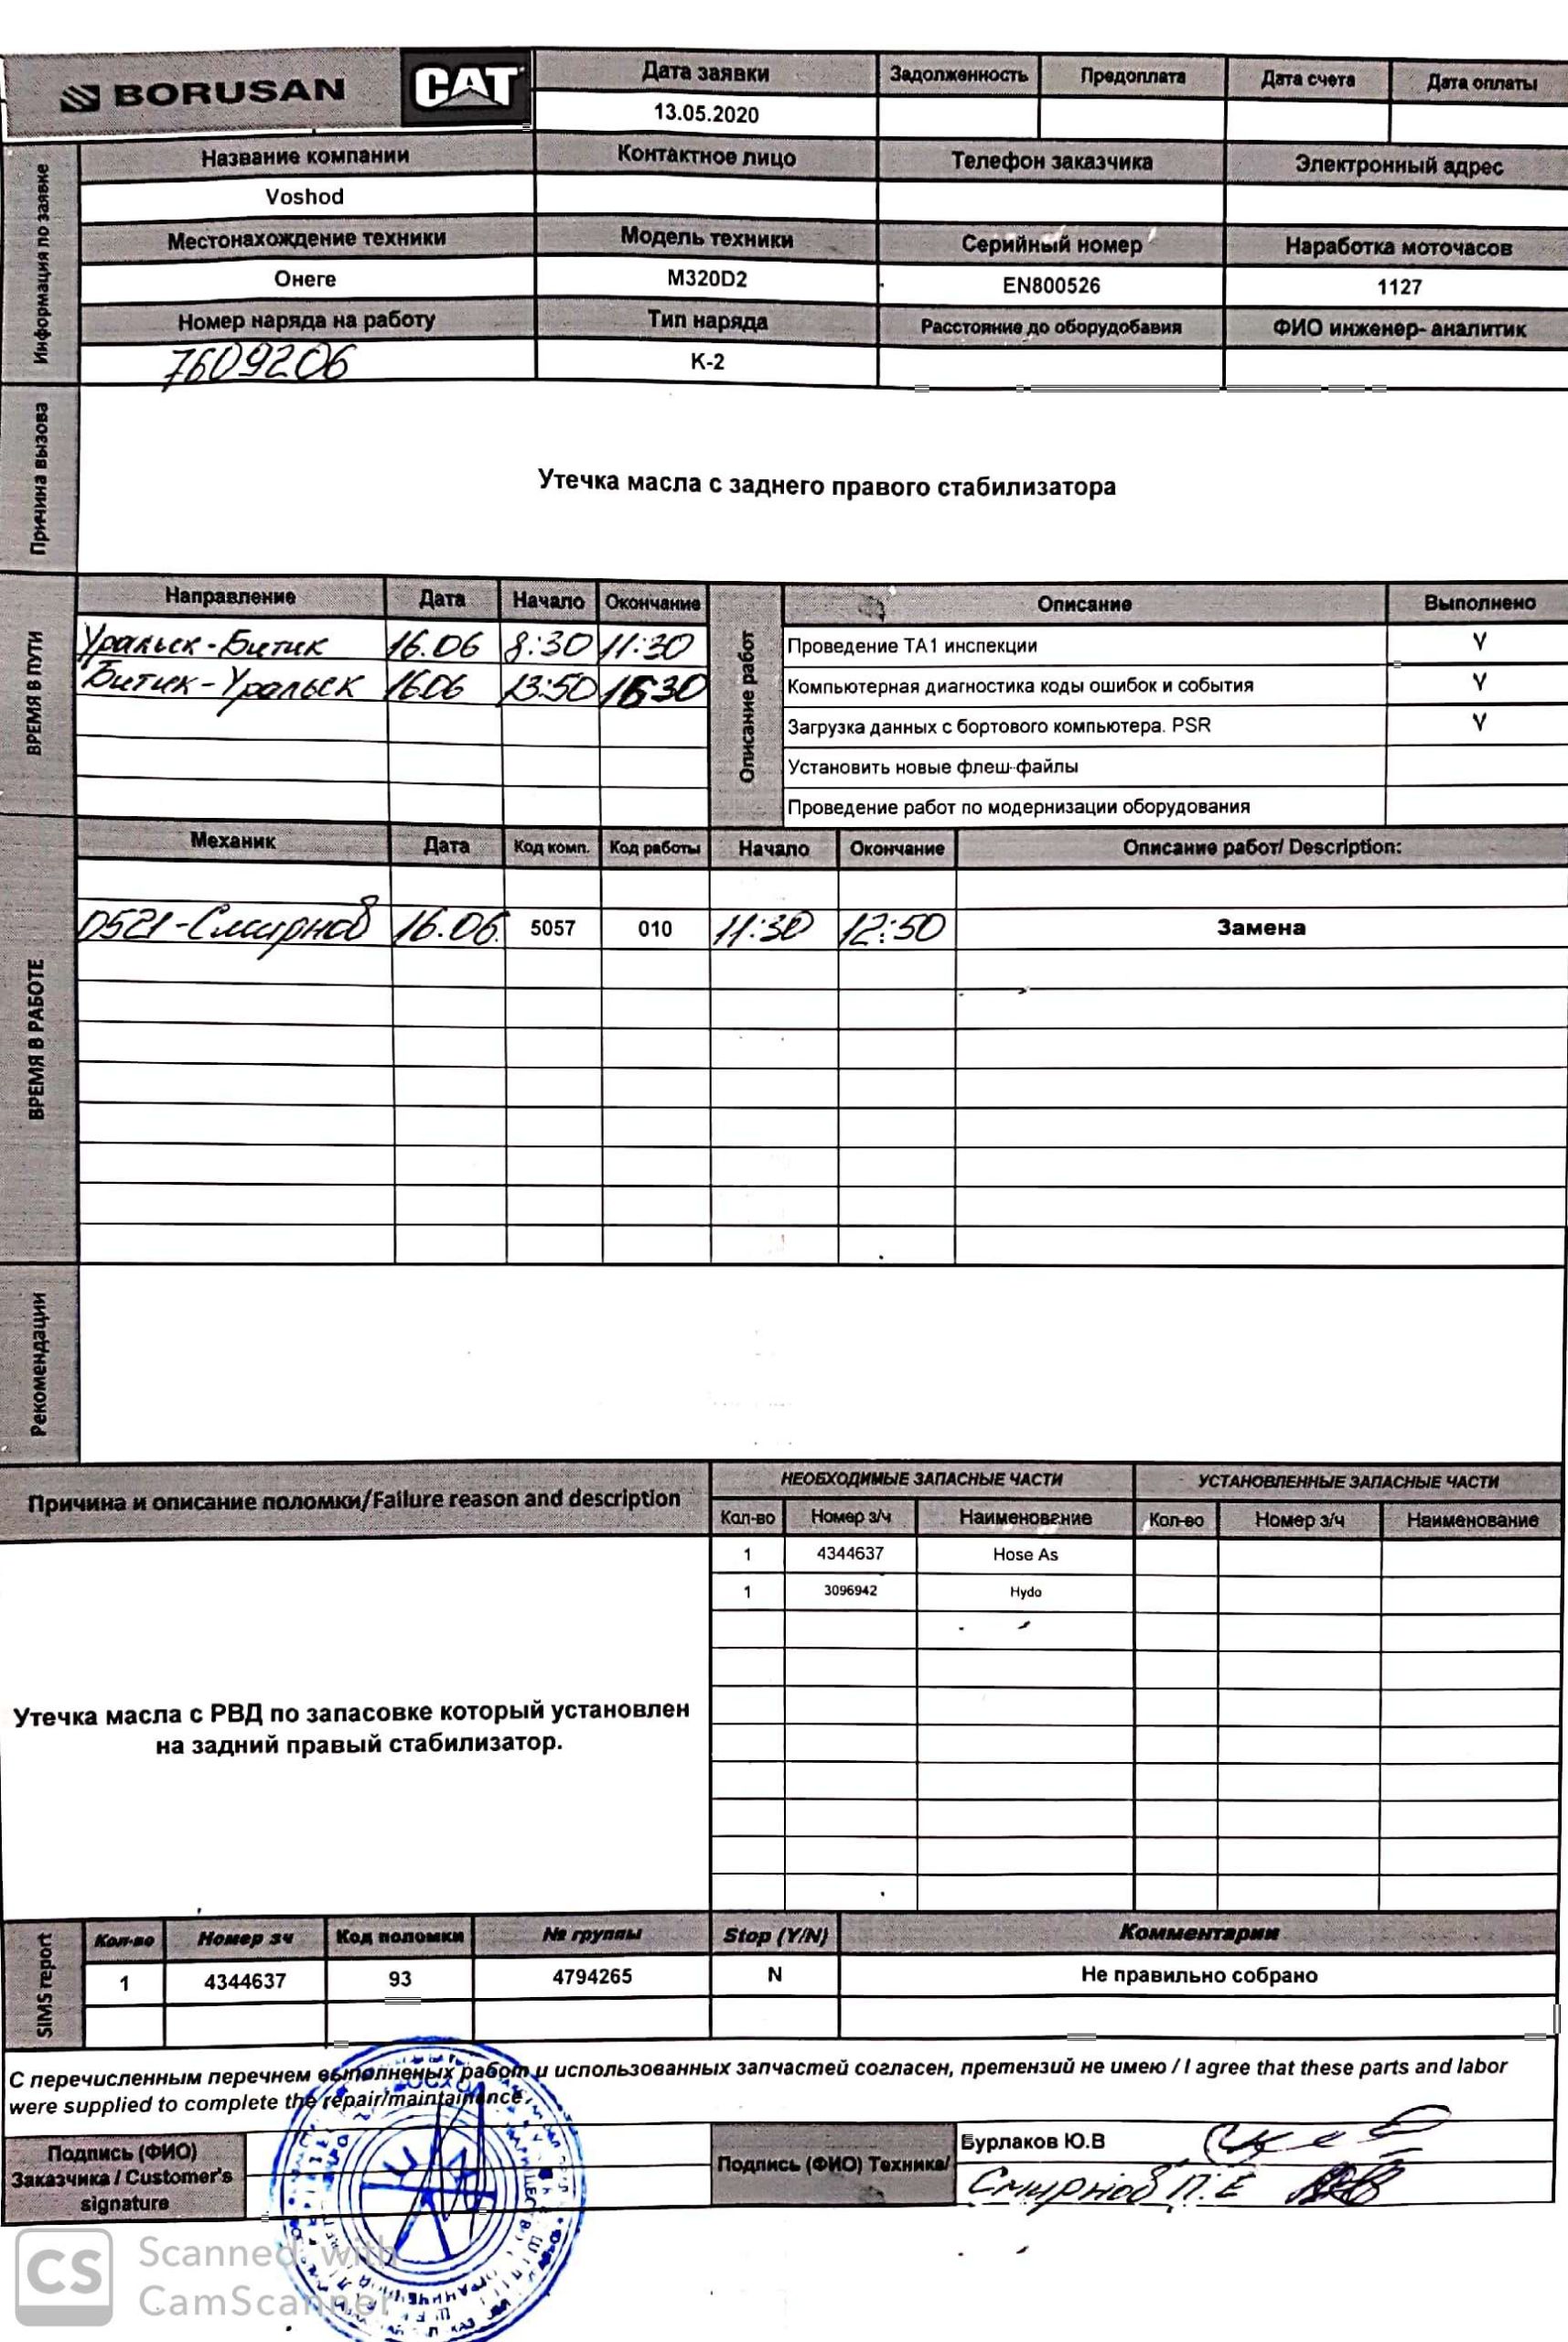 BORUSAN CAT
Дата заявки Задолженность Предоплата Дата счета Дата оплаты
13.05.2020
Информация по заявке
Название компании Контактное лицо Телефон заказчика Электронный адрес
Voshod
Местонахождение техники Модель техники Серийный номер Наработка моточасов
Онеге M320D2 EN800526 1127
Номер наряда на работу Тип наряда Расстояние до оборудобавия ФИО инженер- аналитик
7609206 К-2
Причина вызова
Утечка масла с заднего правого стабилизатора
ВРЕМЯ В ПУТИ
Направление Дата Начало Окончание
Уральск-Битик 16.06 8:30 11:30
Битик-Уральск 16.06 13:50 1630
Описание работ
Описание Выполнено
Проведение ТА1 инспекции Y
Компьютерная диагностика коды ошибок и события Y
Загрузка данных с бортового компьютера. PSR Y
Установить новые флеш-файлы
Проведение работ по модернизации оборудования
ВРЕМЯ В РАБОТЕ
Механик Дата Код комп. Код работы Начало Окончание Описание работ/ Description:
D521-Смирнов 16.06. 5057 010 11:30 12:50 Замена
Рекомендации
Причина и описание поломки/Failure reason and description
НЕОБХОДИМЫЕ ЗАПАСНЫЕ ЧАСТИ УСТАНОВЛЕННЫЕ ЗАПАСНЫЕ ЧАСТИ
Кол-во Номер з/ч Наименовение Кол-во Номер з/ч Наименование
1 4344637 Hose As
1 3096942 Hydo
Утечка масла с РВД по запасовке который установлен
на задний правый стабилизатор.
SIMS report
Кол-во Номер зч Код поломки № группы Stop (Y/N) Комментарии
1 4344637 93 4794265 N Не правильно собрано
С перечисленным перечнем выполненых работ и использованных запчастей согласен, претензий не имею / I agree that these parts and labor
were supplied to complete the repair/maintainence
Подпись (ФИО)
Заказчика / Customer's
signature
Подпись (ФИО) Техника/
Бурлаков Ю.В
Смирнов П.Е
CS Scanned with
CamScanner